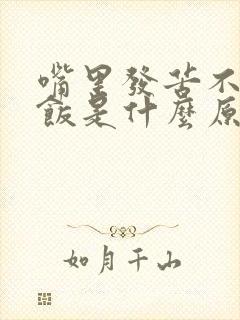 嘴里發苦不
飯是什麼原
如月千山